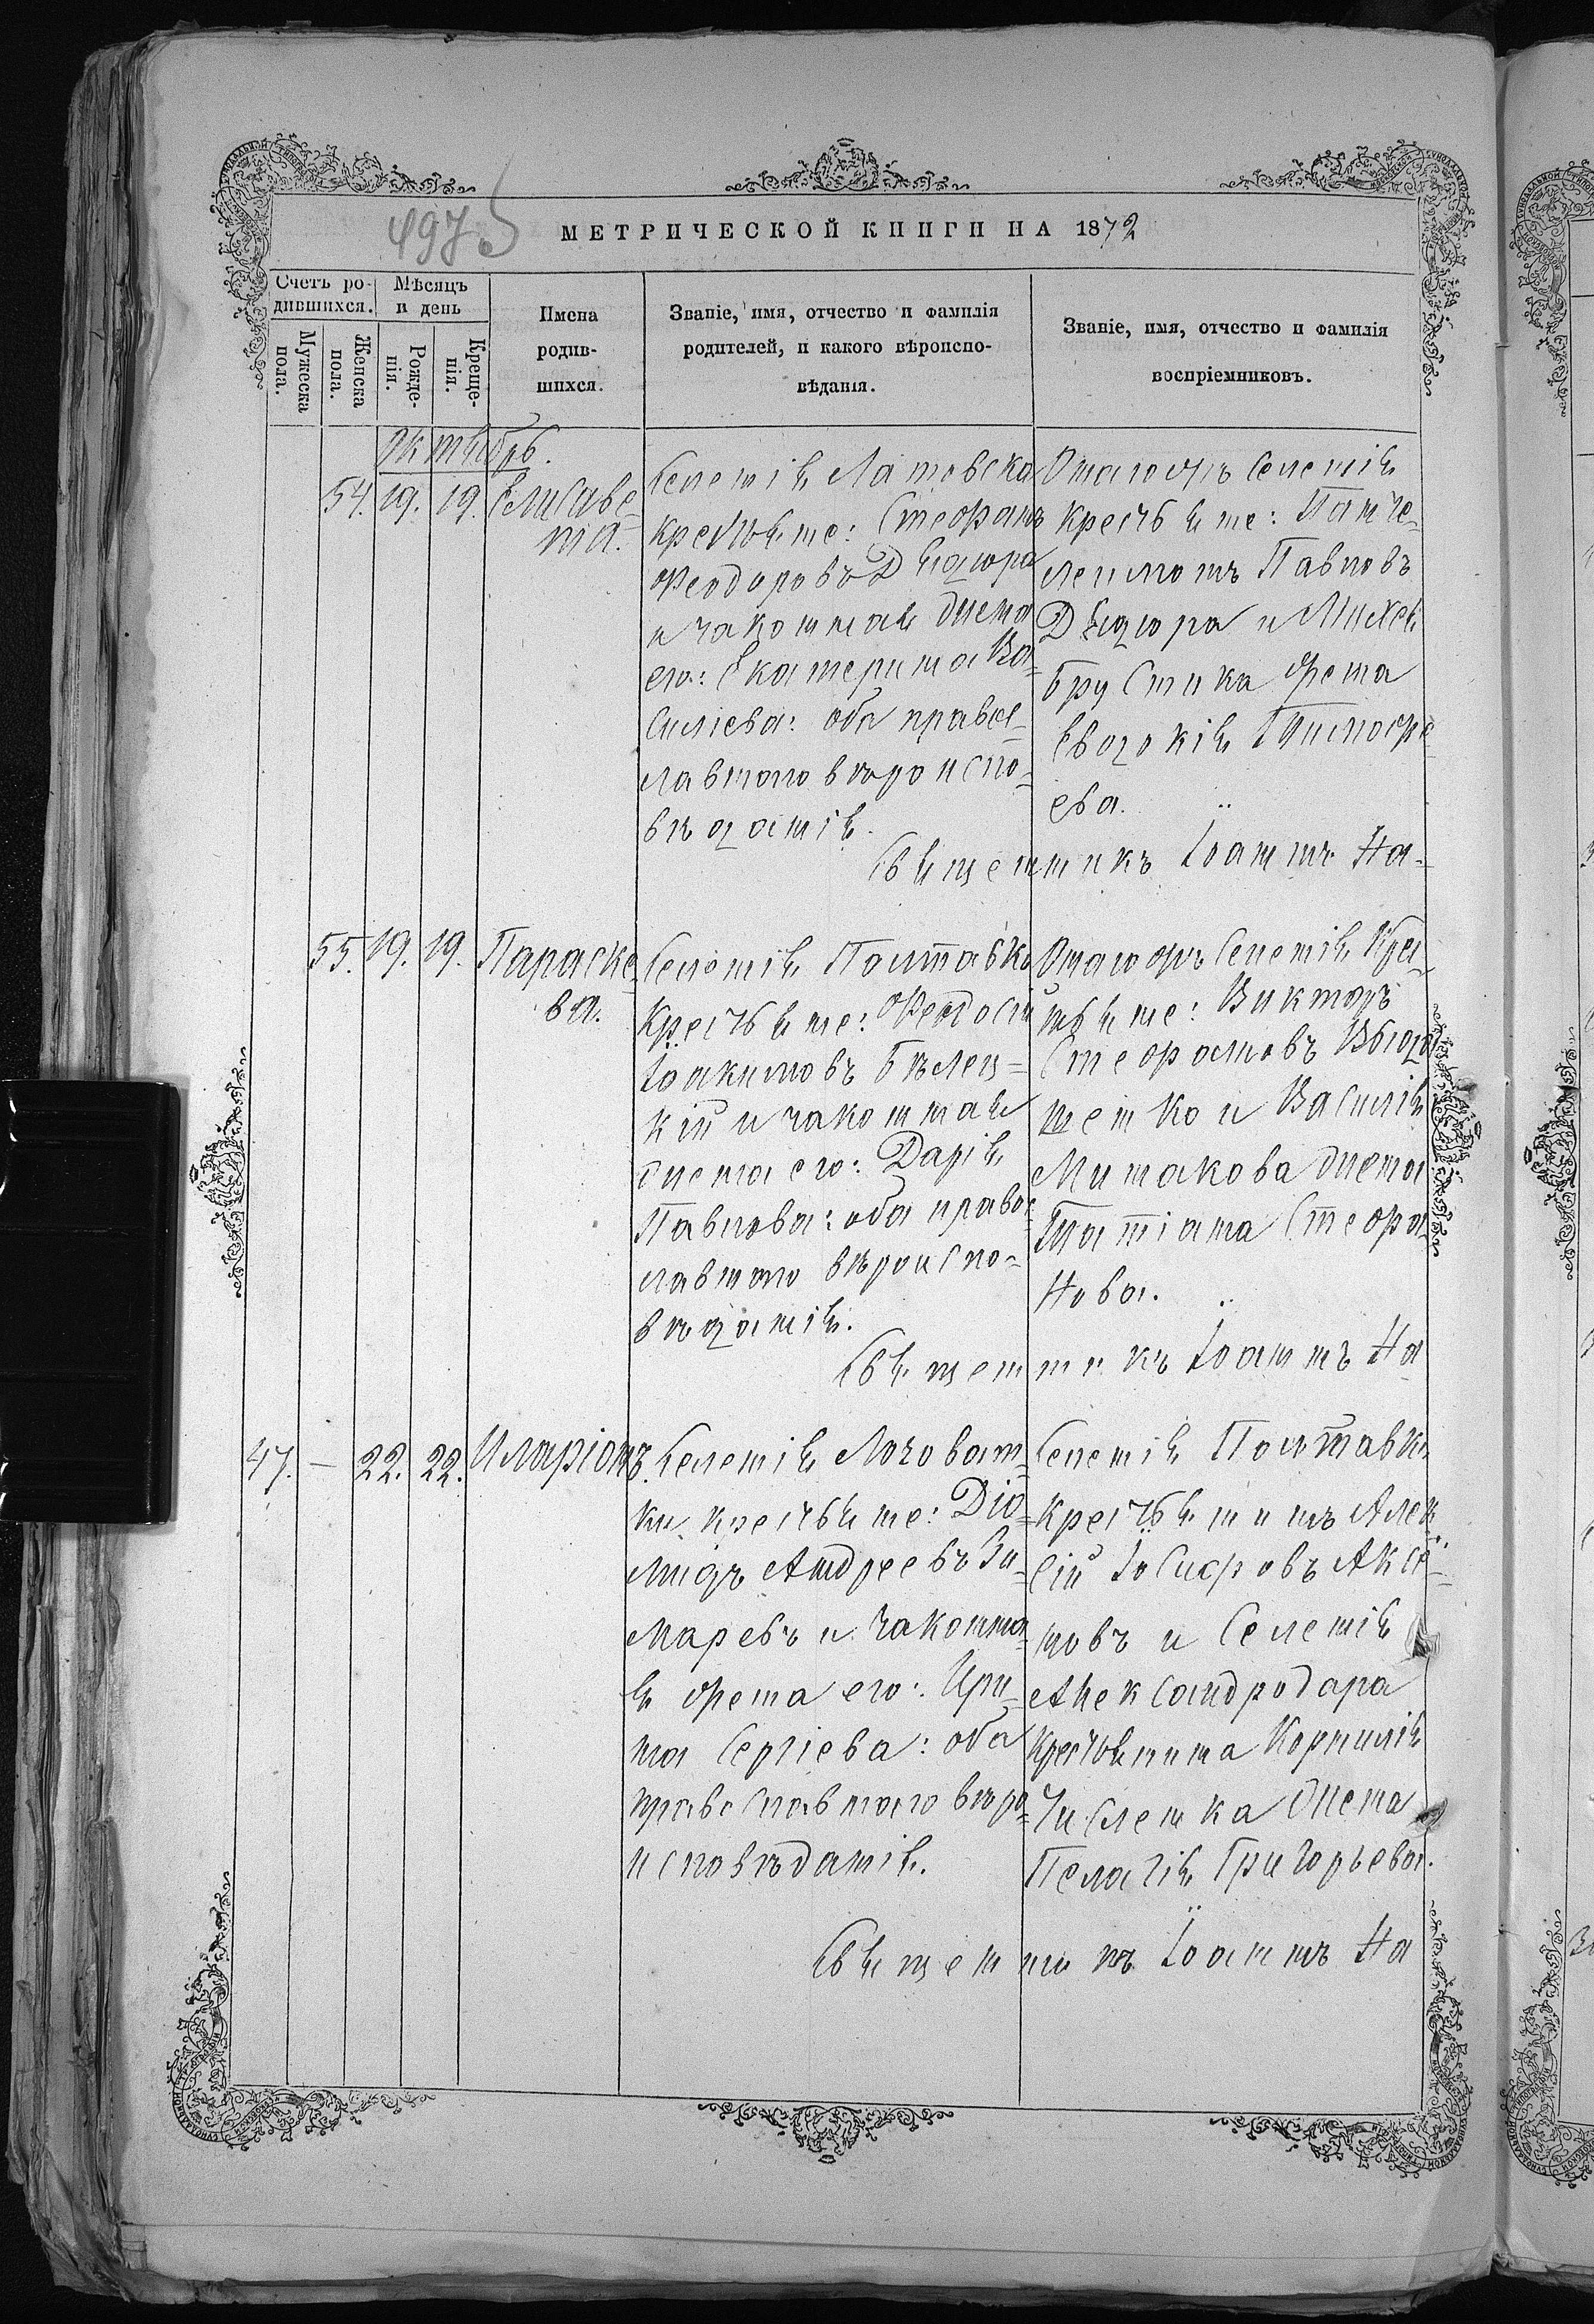 4975
МЕТРИЧЕСКОЙ КНИГИ НА 1872
Счетъ ро-
дившихся.
Мѣсяцъ
и день
Мужеска
пола.
Женска
пола.
Рожде-
нія.
Креще-
нія.
Имена
родив-
шихся.
Званіе, имя, отчество и фамилія
родителей, и какого вѣроиспо-
вѣданія.
Званіе, имя, отчество и фамилія
воспріемниковъ.
Октябрь.
54. 19. 19. Елисаве-
та.
Селенія
крестьяне: Стефанъ
Феодоровъ Дядюра
и законная жена
его: Екатерина Ва-
силіева: оба право-
славнаго вѣроиспо-
вѣданія.
Онагожъ Селенія
крестьяне: Панте-
леимонъ Павловъ
Дядюра и Михея
Брусника жена
Евдокія Тимофе-
ева.
Священникъ Іоаннъ На-
55. 19. 19. Параске-
ва.
Селенія Полтавки
Крестьяне: Феодосій
Іоакимовъ Бѣлец-
кій и законная
жена его: Дарія
Павлова: оба право-
славнаго вѣроиспо-
вѣданія.
Онагожъ Селенія Крес-
тьяне: Викторъ
Стефановъ
и Василія
Минакова жена
Татіана Стефа-
нова.
Священникъ Іоаннъ На
47. - 22. 22. Иларіонъ.
Селенія Лозоват-
ки крестьяне: Діо-
мидъ Андреевъ Зи-
маревъ и законна-
я жена его: Ири-
на Сергіева: оба
православнаго вѣро-
исповѣданія.
Селенія Полтавки
крестьянинъ Алек-
сій Іосифовъ Аксё-
новъ и Селенія
Александродара
Крестьянина Корнилія
Численка жена
Пелагія Григорьева.
Священникъ Іоаннъ На